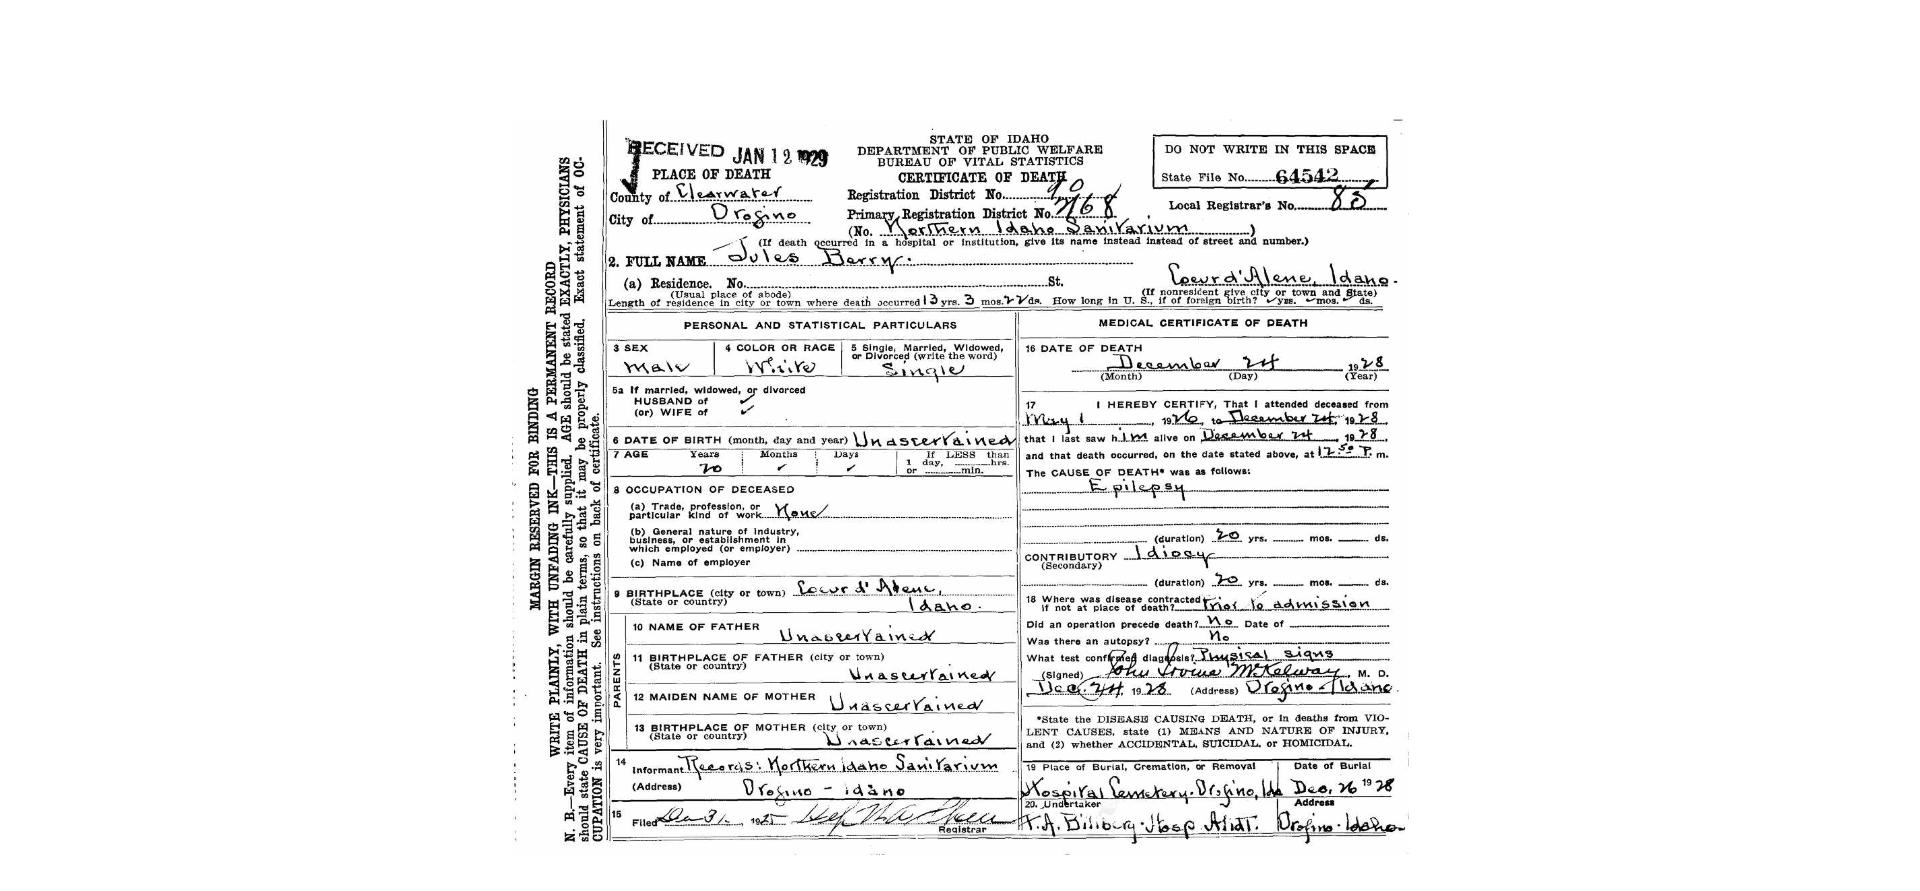 MARGIN RESERVED FOR BINDING
WRITE PLAINLY, WITH UNFADING INK—THIS IS A PERMANENT RECORD
N. B.—Every item of information should be carefully supplied. AGE should be stated EXACTLY, PHYSICIANS
should state CAUSE OF DEATH in plain terms, so that it may be properly classified. Exact statement of OC-
CUPATION is very important. See instructions on back of certificate.
RECEIVED JAN 12 1929
STATE OF IDAHO
DEPARTMENT OF PUBLIC WELFARE
BUREAU OF VITAL STATISTICS
CERTIFICATE OF DEATH
DO NOT WRITE IN THIS SPACE
State File No. 64542
PLACE OF DEATH
County of Clearwater
City of Orofino
Registration District No. 90
Primary Registration District No.
Local Registrar's No. 85
(No. Northern Idaho Sanitarium )
(If death occurred in a hospital or institution, give its name instead instead of street and number.)
2. FULL NAME Jules Berry.
(a) Residence. No. St. Coeur d'Alene, Idaho.
(Usual place of abode) (If nonresident give city or town and State)
Length of residence in city or town where death occurred 13 yrs. 3 mos. 22 ds. How long in U. S., if of foreign birth? ✓ yrs. ✓ mos. ✓ ds.
PERSONAL AND STATISTICAL PARTICULARS
3 SEX
Male
4 COLOR OR RACE
White
5 Single, Married, Widowed,
or Divorced (write the word)
Single
5a If married, widowed, or divorced
HUSBAND of ✓
(or) WIFE of ✓
6 DATE OF BIRTH (month, day and year) Unascertained
7 AGE Years Months Days If LESS than
20 ✓ ✓ 1 day, hrs.
or min.
8 OCCUPATION OF DECEASED
(a) Trade, profession, or
particular kind of work None
(b) General nature of industry,
business, or establishment in
which employed (or employer)
(c) Name of employer
9 BIRTHPLACE (city or town) Coeur d'Alene,
(State or country) Idaho.
PARENTS
10 NAME OF FATHER Unascertained
11 BIRTHPLACE OF FATHER (city or town)
(State or country) Unascertained
12 MAIDEN NAME OF MOTHER Unascertained
13 BIRTHPLACE OF MOTHER (city or town)
(State or country) Unascertained
14 Informant Records: Northern Idaho Sanitarium
(Address) Orofino - Idaho
15 Filed 31, 19
Registrar
MEDICAL CERTIFICATE OF DEATH
16 DATE OF DEATH
December 24 1928
(Month) (Day) (Year)
17 I HEREBY CERTIFY, That I attended deceased from
May 1, 1926, to December 24, 1928,
that I last saw him alive on December 24, 1928,
and that death occurred, on the date stated above, at 12:50 P. m.
The CAUSE OF DEATH* was as follows:
Epilepsy
(duration) 20 yrs. mos. ds.
CONTRIBUTORY Idiocy
(Secondary)
(duration) 20 yrs. mos. ds.
18 Where was disease contracted
if not at place of death? Prior to admission
Did an operation precede death? No Date of
Was there an autopsy? No
What test confirmed diagnosis? Physical signs
(Signed) John Irvine McKelway, M. D.
Dec. 24, 1928 (Address) Orofino - Idaho.
*State the DISEASE CAUSING DEATH, or in deaths from VIO-
LENT CAUSES, state (1) MEANS AND NATURE OF INJURY,
and (2) whether ACCIDENTAL, SUICIDAL, or HOMICIDAL.
19 Place of Burial, Cremation, or Removal Date of Burial
Hospital Cemetery. Orofino, Ida Dec. 26 1928
20. Undertaker Address
F.A. Billberg. Hosp. Orofino. Idaho